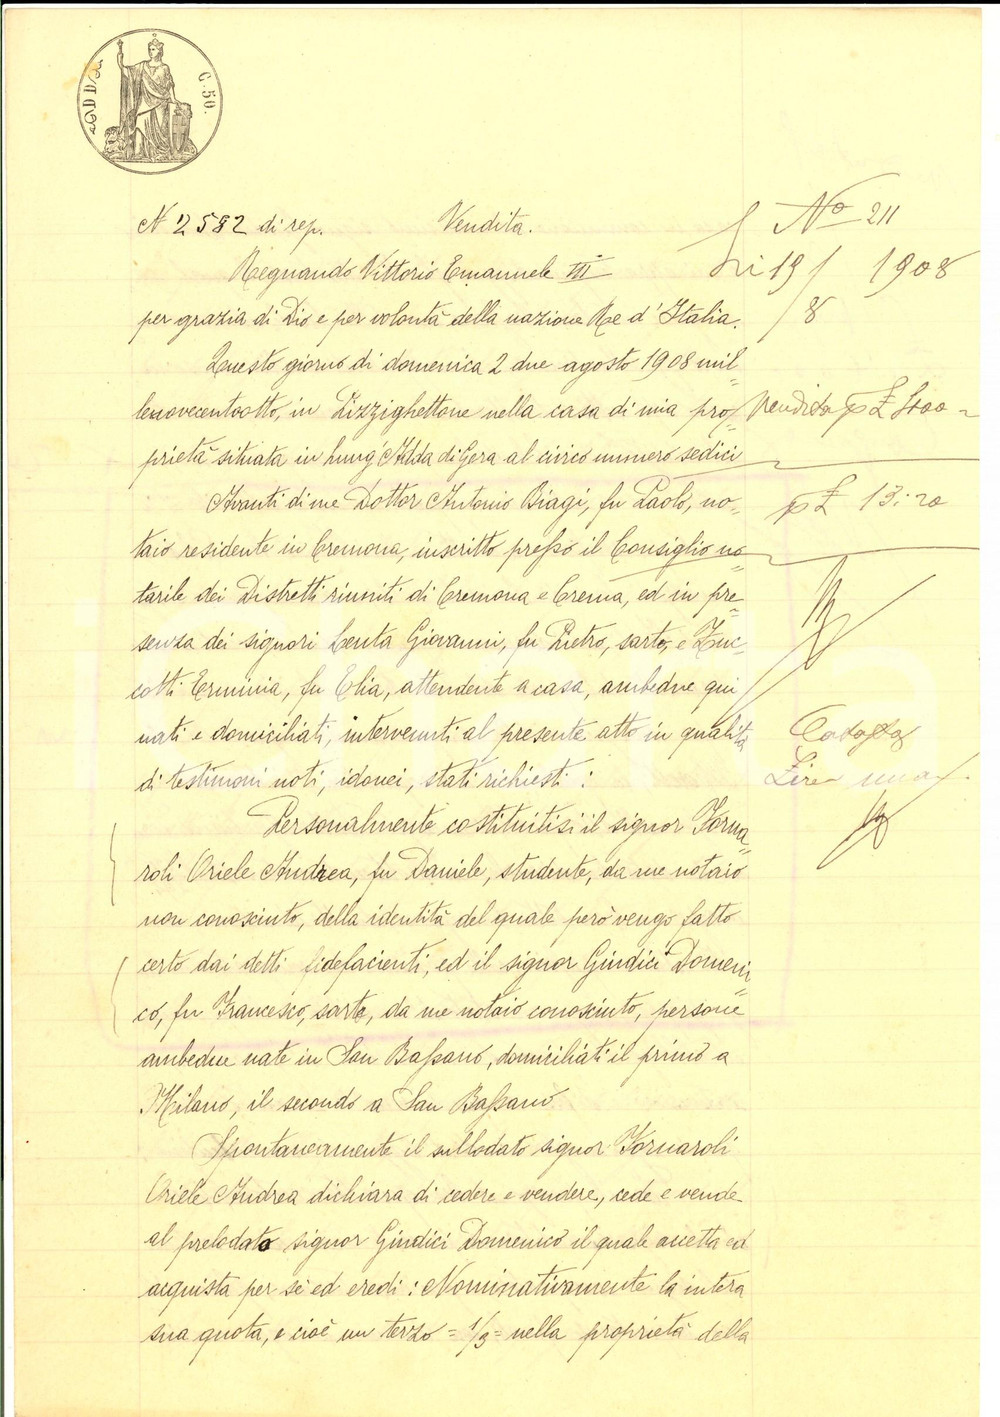 C. 50.
N 2582 di rep. Vendita.
Nº 211
li 19/8 1908
Regnando Vittorio Emanuele III°
per grazia di Dio e per volontà della nazione Re d'Italia.
Questo giorno di domenica 2 due agosto 1908 mil=
lenovecentootto, in Pizzighettone nella casa di mia pro=
Vendita p £
prietà situata in Lung'Adda di Gera al civico numero sedici
Avanti di me Dottor Antonio Biagi, fu Paolo, no=
p £ 13:20
taio residente in Cremona, inscritto presso il Consiglio no=
tarile dei Distretti riuniti di Cremona e Crema, ed in pre=
senza dei signori Centa Giovanni, fu Pietro, sarto, e Zuc=
cotti Erminia, fu Elia, attendente a casa, ambedue qui
nati e domiciliati, intervenuti al presente atto in qualità
di testimoni noti, idonei, stati richiesti:
Lire una
Personalmente costituitisi il signor Forna=
roli Oriele Andrea, fu Daniele, studente, da me notaio
non conosciuto, della identità del quale però vengo fatto
certo dai detti fidefacienti, ed il signor Giudici Domeni=
co, fu Francesco, sarto, da me notaio conosciuto, persone
ambedue nate in San Bassano, domiciliati il primo a
Milano, il secondo a San Bassano
Spontaneamente il sullodato signor Fornaroli
Oriele Andrea dichiara di cedere e vendere, cede e vende
al prelodato signor Giudici Domenico il quale accetta ed
acquista per sè ed eredi: Nominativamente la intera
sua quota, e cioè un terzo = 1/3 = nella proprietà della